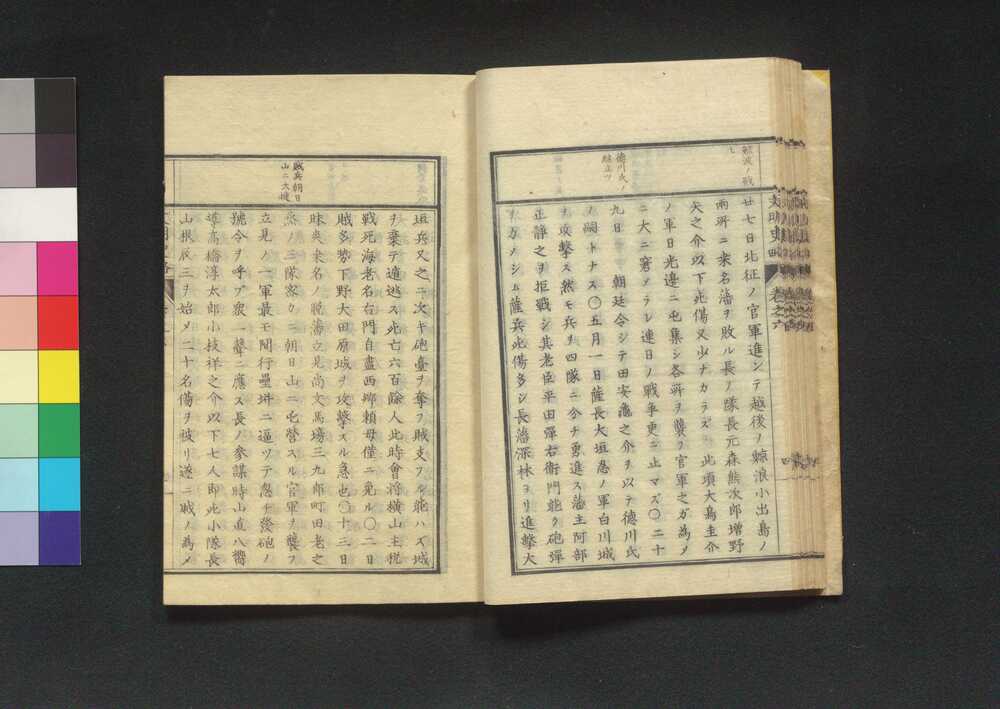 廿七日北征ノ官軍進ンテ越後ノ鯨浪小出島ノ
兩所ニ桒名藩ヲ敗ル長ノ隊長元森熊次郎増野
矢之介以下死傷又少ナカラズ此頃大鳥圭介
ノ軍日光邊ニ屯集シ各所ヲ襲ヲ官軍之ガ為メ
ニ大ニ窘メラレ連日ノ戰争更ニ止マズ〇二十
九日 朝廷令シテ田安龜之介ヲ以テ德川氏
ノ嗣トナス〇五月一日薩長大垣忍ノ軍白川城
ヲ攻撃ス然モ兵ヲ四隊ニ分チ勇進ス藩主阿部
正靜之ヲ拒戰シ其老臣平田彈右衛門能ク砲彈
ヲ放メシム薩兵死傷多シ長藩深林ヨリ進撃大
德川氏ノ
垣兵又之ニ次ギ砲臺ヲ奪フ賊支フル能ハズ城
ヲ棄テ遁逃ス死亡六百餘人此時會將横山主税
戰死海老名右門自盡西郷頼母僅ニ免ル〇二日
賊多勢下野大田原城ヲ攻撃スル急也〇十三日
昧爽桒名ノ脱藩立見尚文馬場三九郎町田老之
丞ノ三隊窃カニ朝日山ニ屯營スル官軍ヲ襲フ
立見ノ一軍最モ間行壘壁ニ逼ツテ忽チ發砲ノ
號令ヲ呼ブ衆一聲ニ應ス長ノ參謀時山直八嚮
導高橋淳太郎小枝祥之介以下七人即死小隊長
山根辰三ヲ始メ二十名傷ヲ被リ遂ニ賊ノ為メ
賊兵朝日
山ニ大捷
文明史畧 卷之六
四